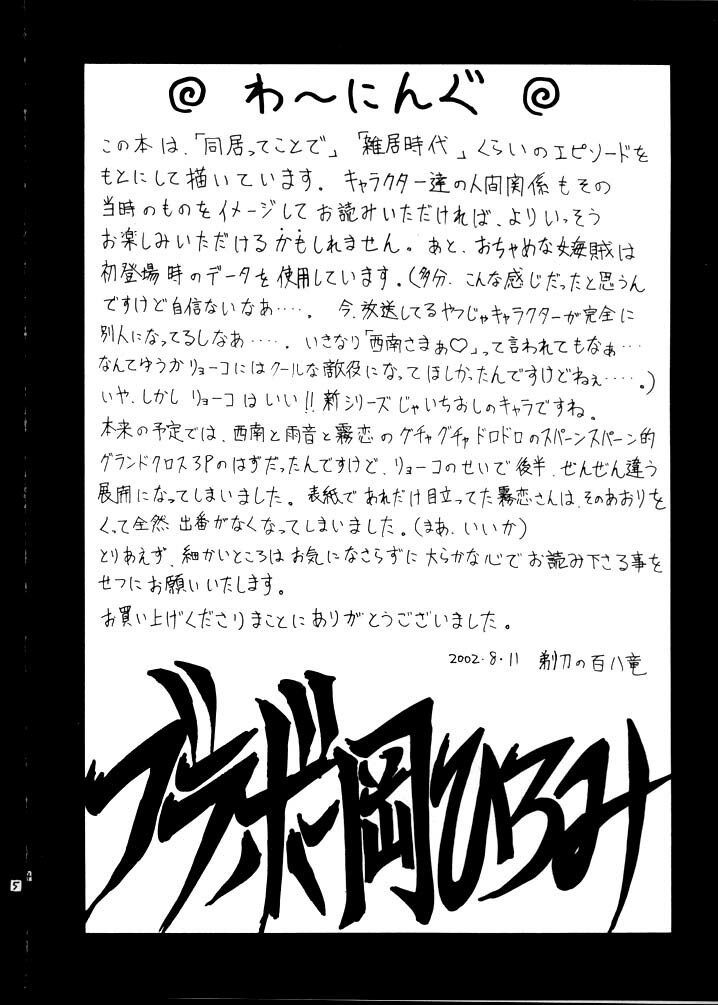 わ～にんぐ
この本は、「同居ってことで」「雑居時代」くらいのエピソードを
もとにして描いています。キャラクター達の人間関係もその
当時のものをイメージしてお読みいただければ、よりいっそう
お楽しみいただけるかもしれません。あと、おちゃめな女海賊は
初登場時のデータを使用しています。(多分、こんな感じだったと思うん
ですけど自信ないなあ‥‥。今、放送してるやつじゃキャラクターが完全に
別人になってるしなあ‥‥。いきなり「西南さまぁ♡」って言われてもなぁ‥
なんてゆうかリョーコにはクールな敵役になってほしかったんですけどねぇ‥‥。)
いや、しかしリョーコはいい!!新シリーズじゃいちおしのキャラですね。
本来の予定では、西南と雨音と霧恋のグチャグチャドロドロのスパーンスパーン的
グランドクロス3Pのはずだったんですけど、リョーコのせいで後半、ぜんぜん違う
展開になってしまいました。表紙であれだけ目立ってた霧恋さんは、そのあおりを
くって全然出番がなくなってしまいました。(まあ、いいか)
とりあえず、細かいところはお気になさらずに大らかな心でお読み下さる事を
せつにお願いいたします。
お買い上げくださりまことにありがとうございました。
2002.8.11 剃刀の百八竜
ブラボー岡ひろみ
5